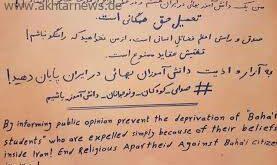 www.akhtarnews.de
من یک دانش آموز بهائی در ایران هستم
تحصیل حق همگان است.
صدق و راستی اعظم فضائل انسانی است. از من نخواهید که راستگو نباشم!
تفتیش عقاید ممنوع است.
به آزار و اذیت دانش آموزان بهائی در ایران پایان دهید!
# صدای کودکان و نوجوانان دانش آموز باشیم
By informing public opinion prevent the deprivation of "Baha'i
students" who are expelled simply because of their beliefs
inside Iran! End Religious Apartheid Against Baha'i citizens